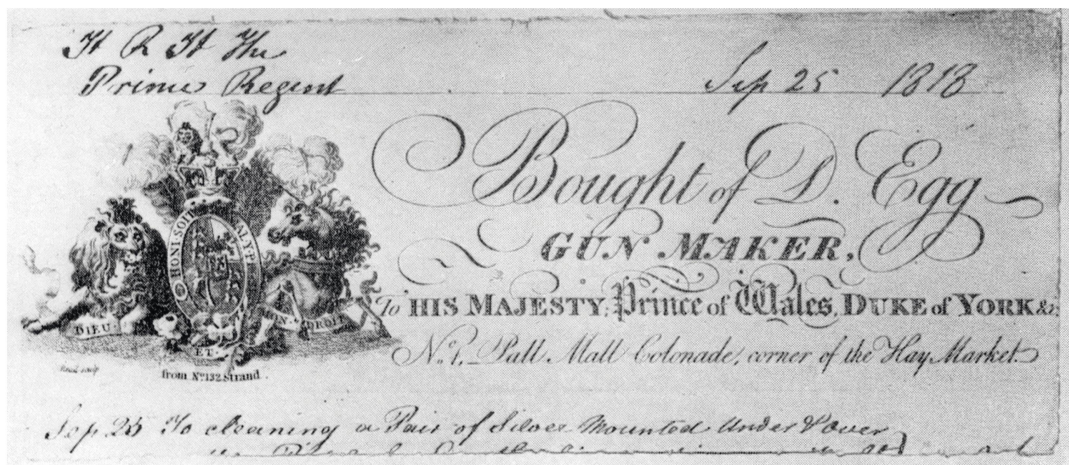 H R H The
Prince Regent
Sep 25 1818
Bought of D. Egg
GUN MAKER,
To HIS MAJESTY, Prince of Wales, DUKE of YORK &c.
No. 1, Pall Mall Colonade, corner of the Hay Market.
HONI SOIT MAL Y PE
DIEU ET MON DROIT
from No. 132 Strand.
Sep 25 To cleaning a Pair of Silver Mounted Under & over